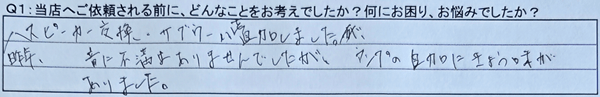 Q1:当店へご依頼される前に、どんなことをお考えでしたか?何にお困り、お悩みでしたか?
スピーカー交換・サブウーハ追加しました。が、
昨年、音に不満はありませんでしたが、アンプの追加にきょう味が
ありました。